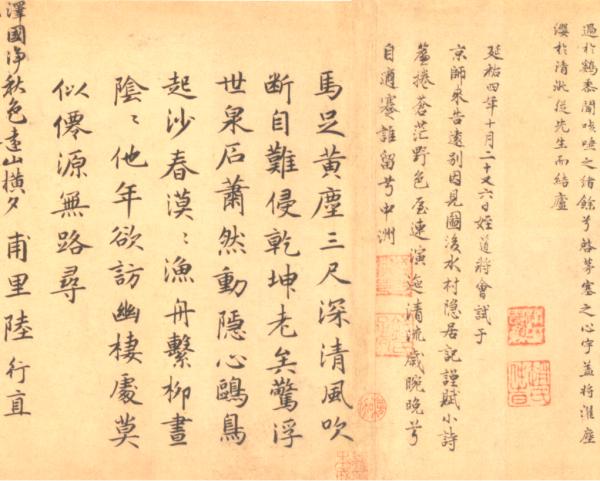 過於鷄黍聞咳唾之緒餘兮啓茅塞之心宇盖将濯塵
纓於清泚從先生而結廬
延祐四年十月二十又六日姪道將會試于
京師来告遠别因見圖後水村隐居記謹賦小詩
簾捲蒼茫野色屋連演漾清流歲晼晚兮
自適蹇誰留兮中洲
馬足黄塵三尺深清風吹
断自難侵乾坤老矣驚浮
世泉石蕭然動隱心鷗鳥
起沙春漠〻漁舟繫柳晝
陰〻他年欲訪幽棲處莫
似僊源無路尋
甫里陸行直
澤國淨秋色遠山横夕